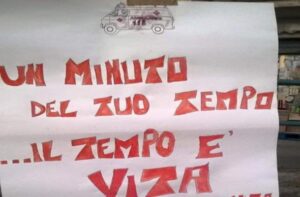 UN MINUTO
DEL TUO TEMPO
...IL TEMPO E'
VITA